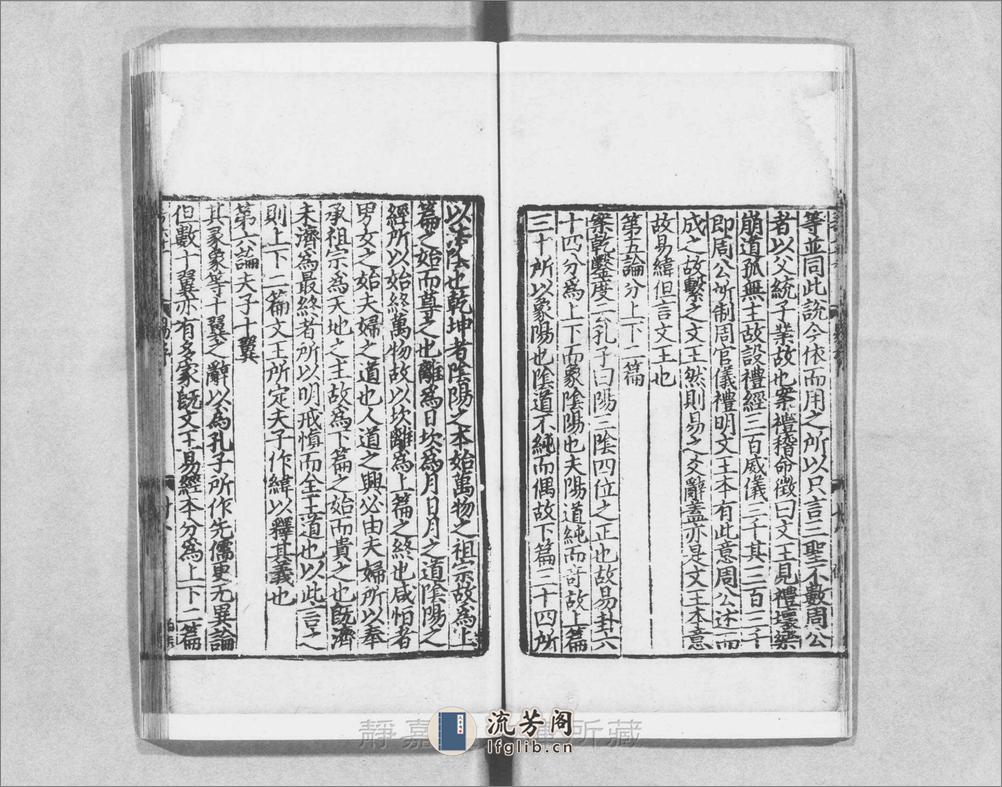 等並同此說今依而用之所以只言三聖不數周公
者以父統子業故也案禮稽命徵曰文王見禮壞樂
崩道孤無主故設禮經三百威儀三千其三百三千
即周公所制周官儀禮明文王本有此意周公述而
成之故繫之文王然則易之爻辭蓋亦是文王本意
故易緯但言文王也
第五論分上下二篇
案乾鑿度云孔子曰陽三陰四位之正也故易卦六
十四分爲上下而象陰陽也夫陽道純而奇故上篇
三十所以象陽也陰道不純而偶故下篇三十四所
以法陰也乾坤者陰陽之本始萬物之祖宗故爲上
篇之始而尊之也離爲日坎爲月日月之道陰陽之
經所以始終萬物故以坎離爲上篇之終也咸恒者
男女之始夫婦之道也人道之興必由夫婦所以奉
承祖宗爲天地之主故爲下篇之始而貴之也旣濟
未濟爲最終者所以明戒慎而全王道也以此言之
則上下二篇文王所定夫子作緯以釋其義也
第六論夫子十翼
其彖象等十翼之辭以爲孔子所作先儒更无異論
但數十翼亦有多家旣文王易經本分爲上下二篇
靜嘉
所藏
流芳阁
lfglib.cn